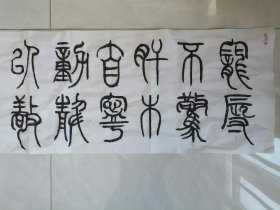 寵辱
不驚
肝木
自寧
動靜
以敬